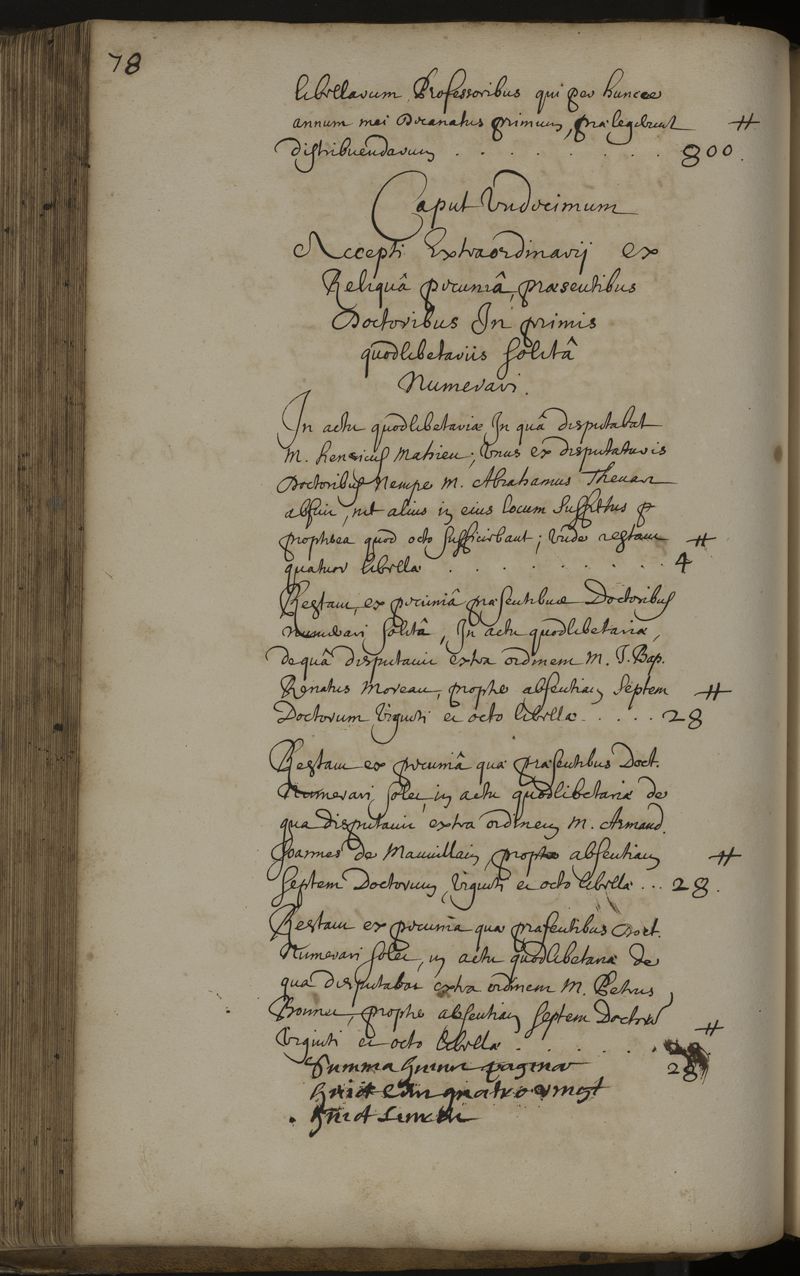 78
libellarum Professoribus qui per hunce
annum mei Decanatus primum, prælegerunt ⧺
distribuendarum . . . . . . . . 800.
Caput Undecimum
Accepti Extraordinarij ex
Reliquâ pecuniâ, præsentibus
Doctoribus In primis
quodlibetariis solitâ
Numerari.
In actu quodlibetariæ In quâ disputabat
M. henricus Mahieu; Unus ex disputaturis
Doctoribus Nempe M. Abrahamus Thevart
abfuit, nec alius in eius locum suffectus
propterea quod octo sufficiebant; Unde restant ⧺
quatuor libellæ . . . . . . . . . 4
Restant ex pecuniâ præsentibus Doctoribus
numerari solitâ, In actu quodlibetariæ,
de quâ disputavit extra ordinem M. J. Bap.
Renatus Moreau, propter absentiam septem ⧺
Doctorum Viginti et octo libellæ . . . . . 28
Restant ex pecuniâ quæ præsentibus Doct.
Numerari solet, in actu quodlibetariæ de
qua disputavit extra ordinem M. Armand.
Joannes de Mauvillain, propter absentiam ⧺
septem Doctorum, Viginti et octo libellæ ... 28.
Restant ex pecunia quæ præsentibus Doct.
Numerari solet, in actu quodlibetariæ de
quâ disputabat extra ordinem M. Petrus
Bonnet, propter absentiam septem Doctorum ⧺
Viginti et octo libellæ . . . . . .
Summa huius paginæ 28
huict cen quatre vingt
huict